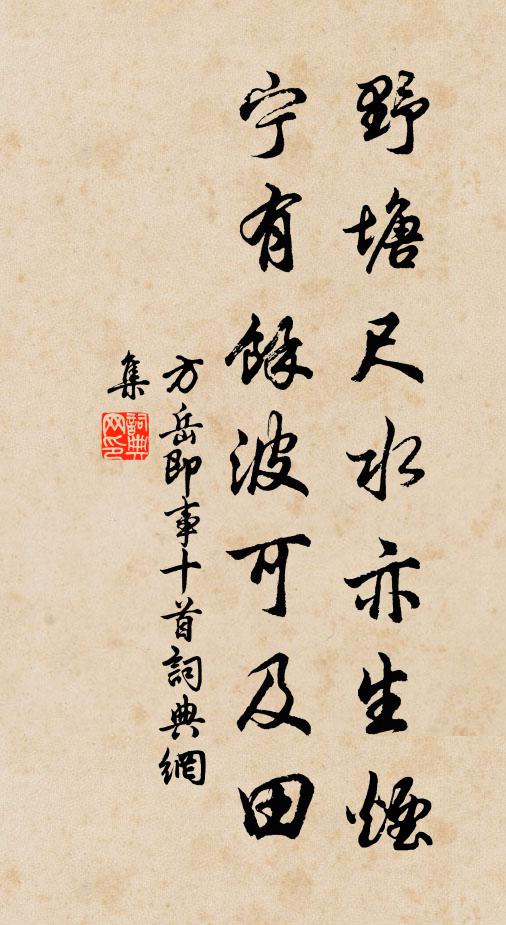 野塘尺水亦生煙
宁有餘波可及田
方岳即事十首詞典網
集
詞典网印